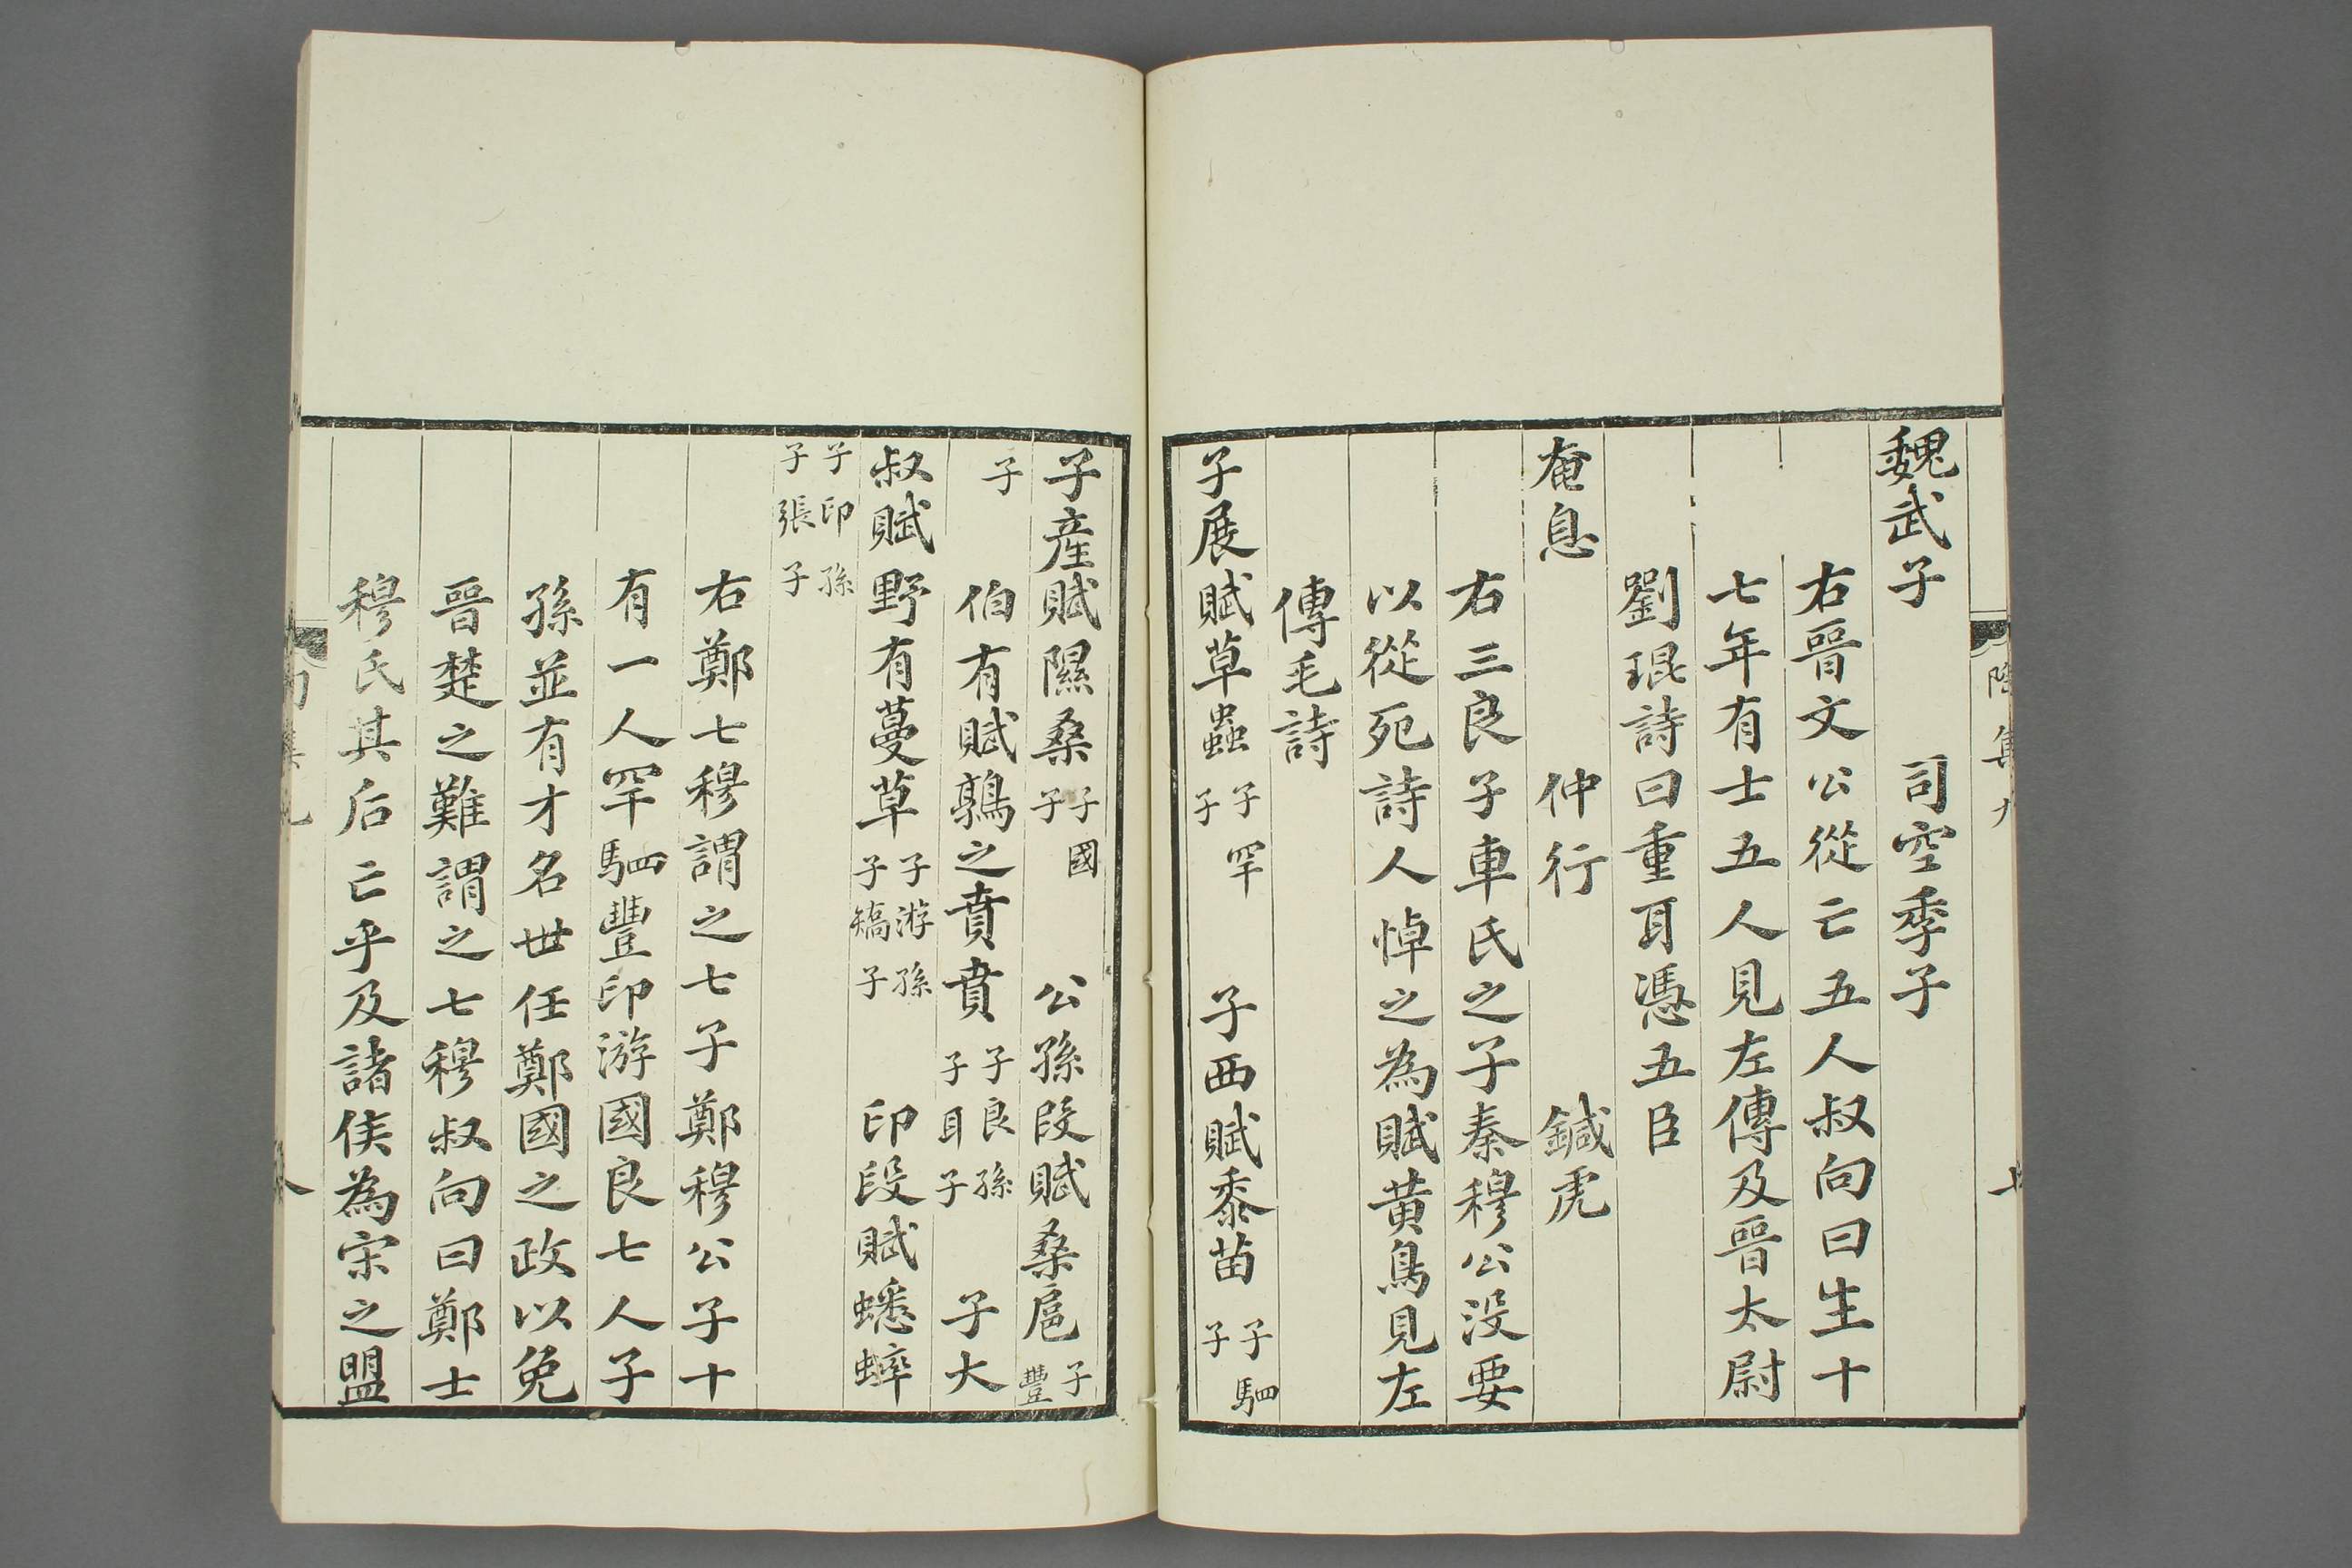 魏武子 司空季子
右晉文公從亡五人叔向曰生十
七年有士五人見左傳及晉太尉
劉琨詩曰重耳憑五臣
奄息 仲行 鍼虎
右三良子車氏之子秦穆公沒要
以從死詩人悼之為賦黃鳥見左
傳毛詩
子展賦草蟲 子罕子 子西賦黍苗 子駟子
子產賦隰桑 子國子 公孫段賦桑扈 子豐
子 伯有賦鶉之賁賁 子良孫子耳子 子大
叔賦野有蔓草 子游孫子矯子 印段賦蟋蟀
子印孫子張子
右鄭七穆謂之七子鄭穆公子十
有一人罕駟豐印游國良七人子
孫並有才名世任鄭國之政以免
晉楚之難謂之七穆叔向曰鄭士
穆氏其后亡乎及諸侯為宋之盟